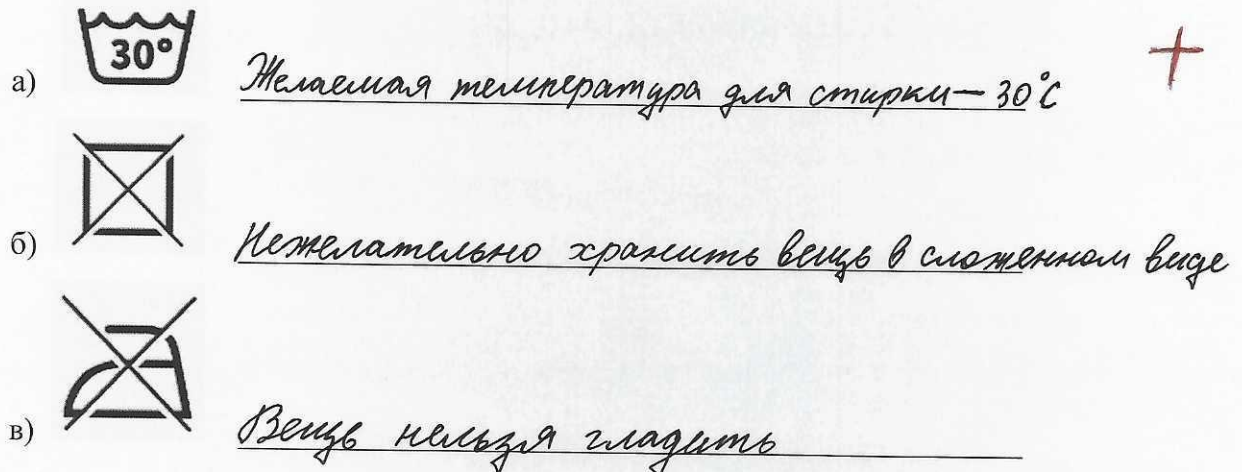 30°
а) Желаемая температура для стирки — 30°С
б) Нежелательно хранить вещь в сложенном виде
в) Вещь нельзя гладить